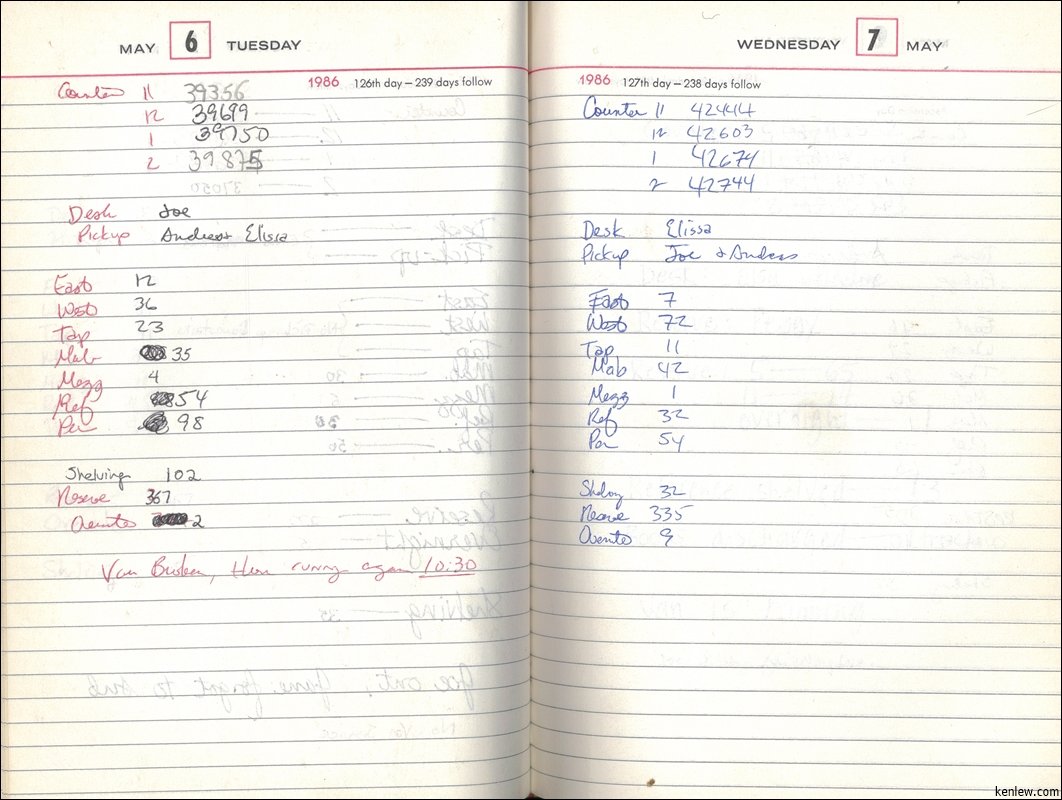 MAY 6 TUESDAY
1986 126th day — 239 days follow
Counter 11 39356
12 39699
1 39750
2 39875
Desk Joe
Pickup Andreas Elissa
East 12
West 36
Tap 23
Mab 35
Mezz 4
Ref 54
Per 98
Shelving 102
Reserve 367
Overnite 2
Van Broken, then running again 10:30
WEDNESDAY 7 MAY
1986 127th day — 238 days follow
Counter 11 42444
12 42603
1 42674
2 42744
Desk Elissa
Pickup Joe + Andreas
East 7
West 72
Tap 11
Mab 42
Mezz 1
Ref 32
Per 54
Shelving 32
Reserve 335
Overnite 9
kenlew.com